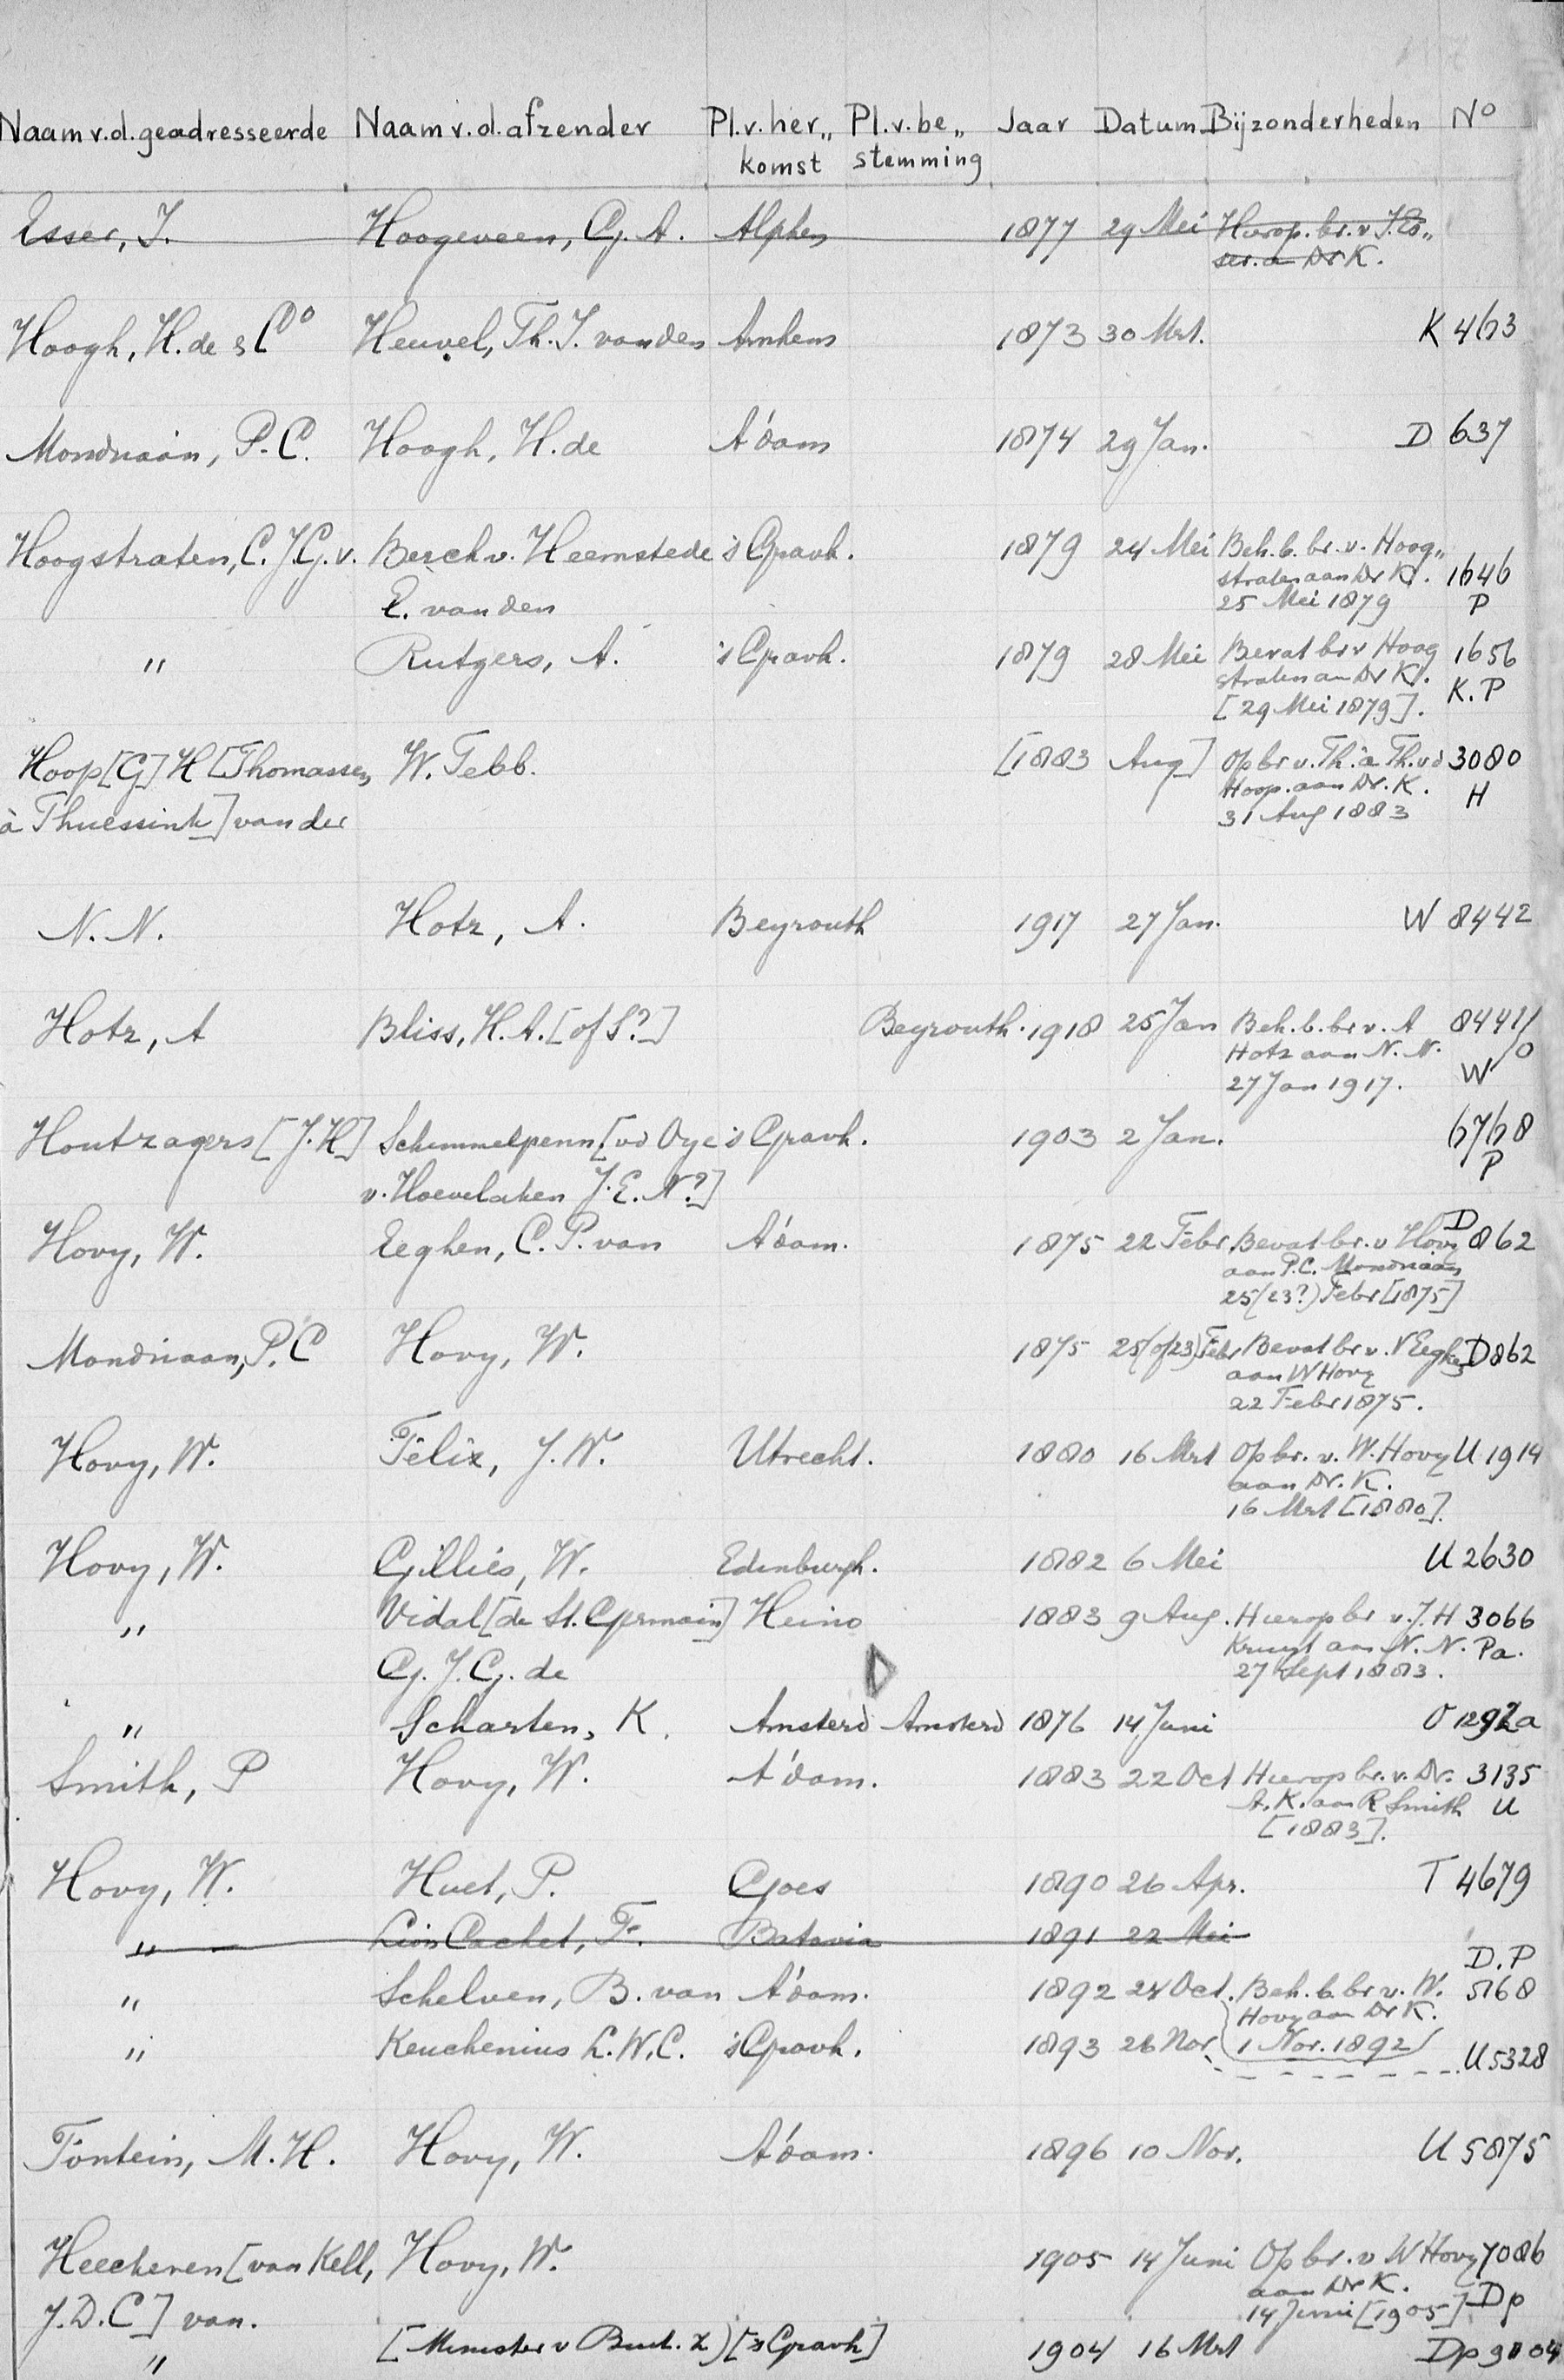 Naam v.d. geadresseerde Naam v.d. afzender Pl. v. her„ Pl. v. be„ Jaar Datum Bijzonderheden No
komst stemming
Esser, I. Hoogeveen, G. A. Alphen 1877 29 Mei Hierop. br. v. I. Es„
ser. a Dr K.
Hoogh, H. de & Co Heuvel, Th. J. van den Arnhem 1873 30 Mrt. K 463
Mondriaan, P. C. Hoogh, H. de A'dam 1874 29 Jan. D 637
Hoogstraten, C. J. G. v. Berch v. Heemstede 's Gravh. 1879 24 Mei Beh. b. br. v. Hoog„
straten aan Dr K. 1646
E. van den 25 Mei 1879 P
" Rutgers, A. 's Gravh. 1879 28 Mei Bevat br v Hoog 1656
straten aan Dr K. K. P
[29 Mei 1879].
Hoop [G] H [Thomassen, W. Tebb. [1883 Aug] Op br v. Th. à Th. vd 3080
Hoop. aan Dr. K. H
à Thuessink] van der 31 Aug 1883
N. N. Hotz, A. Beyrouth 1917 27 Jan. W 8442
Hotz, A Bliss, H. A. [of S?] Beyrouth. 1918 25 Jan Beh. b. br v. A 8441/
Hotz aan N. N. O
27 Jan 1917. W
Houtzagers [J. H] Schimmelpenn [vd Oye 's Gravh. 1903 2 Jan. 6768
P
v. Hoevelaken J. E. N?]
Hovy, W. Eeghen, C. P. van A'dam. 1875 22 Febr Bevat br. v Hovy D 862
aan P. C. Mondriaan
25 (23?) Febr [1875]
Mondriaan, P. C Hovy, W. 1875 25 (of 23) Febr Bevat br v. V Eeghen D 862
aan W Hovy
22 Febr 1875.
Hovy, W. Felix, J. W. Utrecht. 1880 16 Mrt Op br. v. W. Hovy U 1914
aan Dr. K.
16 Mrt [1880].
Hovy, W. Gillies, W. Edinburgh. 1882 6 Mei U 2630
" Vidal [de St. Germain] Heino 1883 9 Aug. Hierop br v. J. H 3066
Kruyt aan N. N. Pa.
G. J. G. de 27 Sept 1883.
" Scharten, K. Amsterd Amsterd 1876 14 Juni O 1292a
Smith, P Hovy, W. A'dam. 1883 22 Oct Hierop br. v. Dr. 3135
A. K. aan R Smith U
[1883].
Hovy, W. Huet, P. Goes 1890 26 Apr. T 4679
" Lion Cachet, F. Batavia 1891 22 Mei
D. P
" Schelven, B. van A'dam. 1892 24 Oct. Beh. b. br v. W. 5168
Hovy aan Dr K.
" Keuchenius L. W. C. 's Gravh. 1893 26 Nov. 1 Nov. 1892 U 5328
Fontein, M. H. Hovy, W. A'dam. 1896 10 Nov. U 5875
Heeckeren [van Kell, Hovy, W. 1905 14 Juni Op br. v W Hovy 7086
aan Dr K. Dp
J. D. C] van. 14 Juni [1905]
" [Minister v Buit. Z) ['s Gravh] 1904 16 Mrt Dp